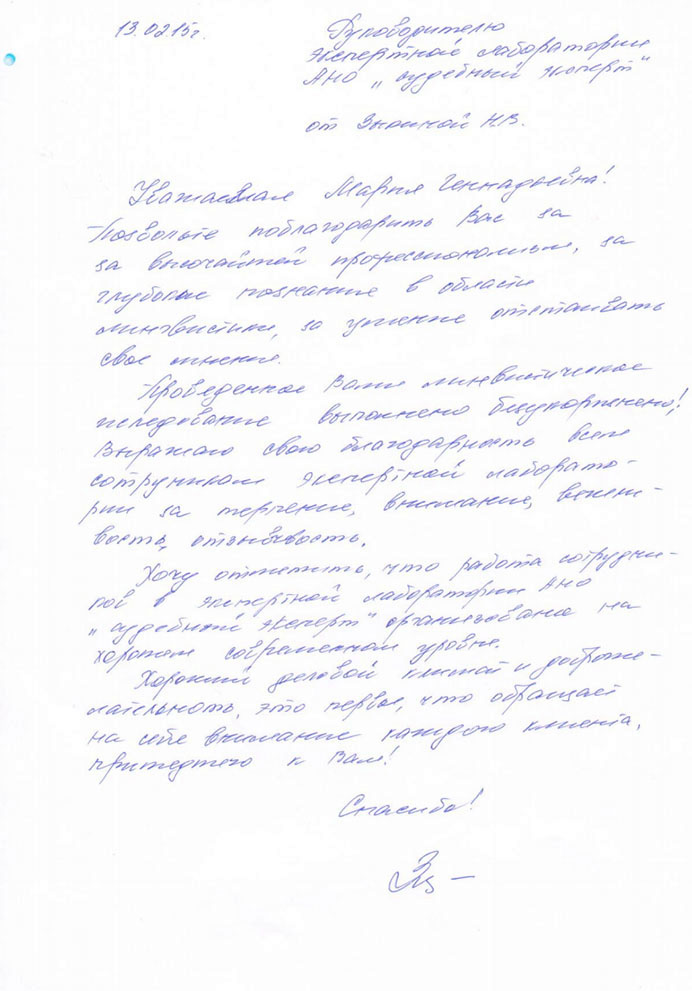 13.0215г.
Руководителю
экспертной лаборатории
АНО „Судебный эксперт"
от Зниной Н.В.
Уважаемая Мария Геннадьевна!
Позвольте поблагодарить Вас за
за высочайший профессионализм, за
глубокие познание в области
лингвистики, за умение отстаивать
свое мнение.
Проведенное Вами лингвистическое
исследование выполнено безукоризненно!
Выражаю свою благодарность всем
сотрудникам экспертной лаборато-
рии за терпение, внимание, вежли-
вость, отзывчивость.
Хочу отметить, что работа сотрудни-
ков в экспертной лаборатории АНО
„Судебный эксперт" организована на
хорошем современном уровне.
Хороший деловой климат и доброже-
лательность, это первое, что обращает
на себя внимание каждого клиента,
пришедшего к Вам!
Спасибо!